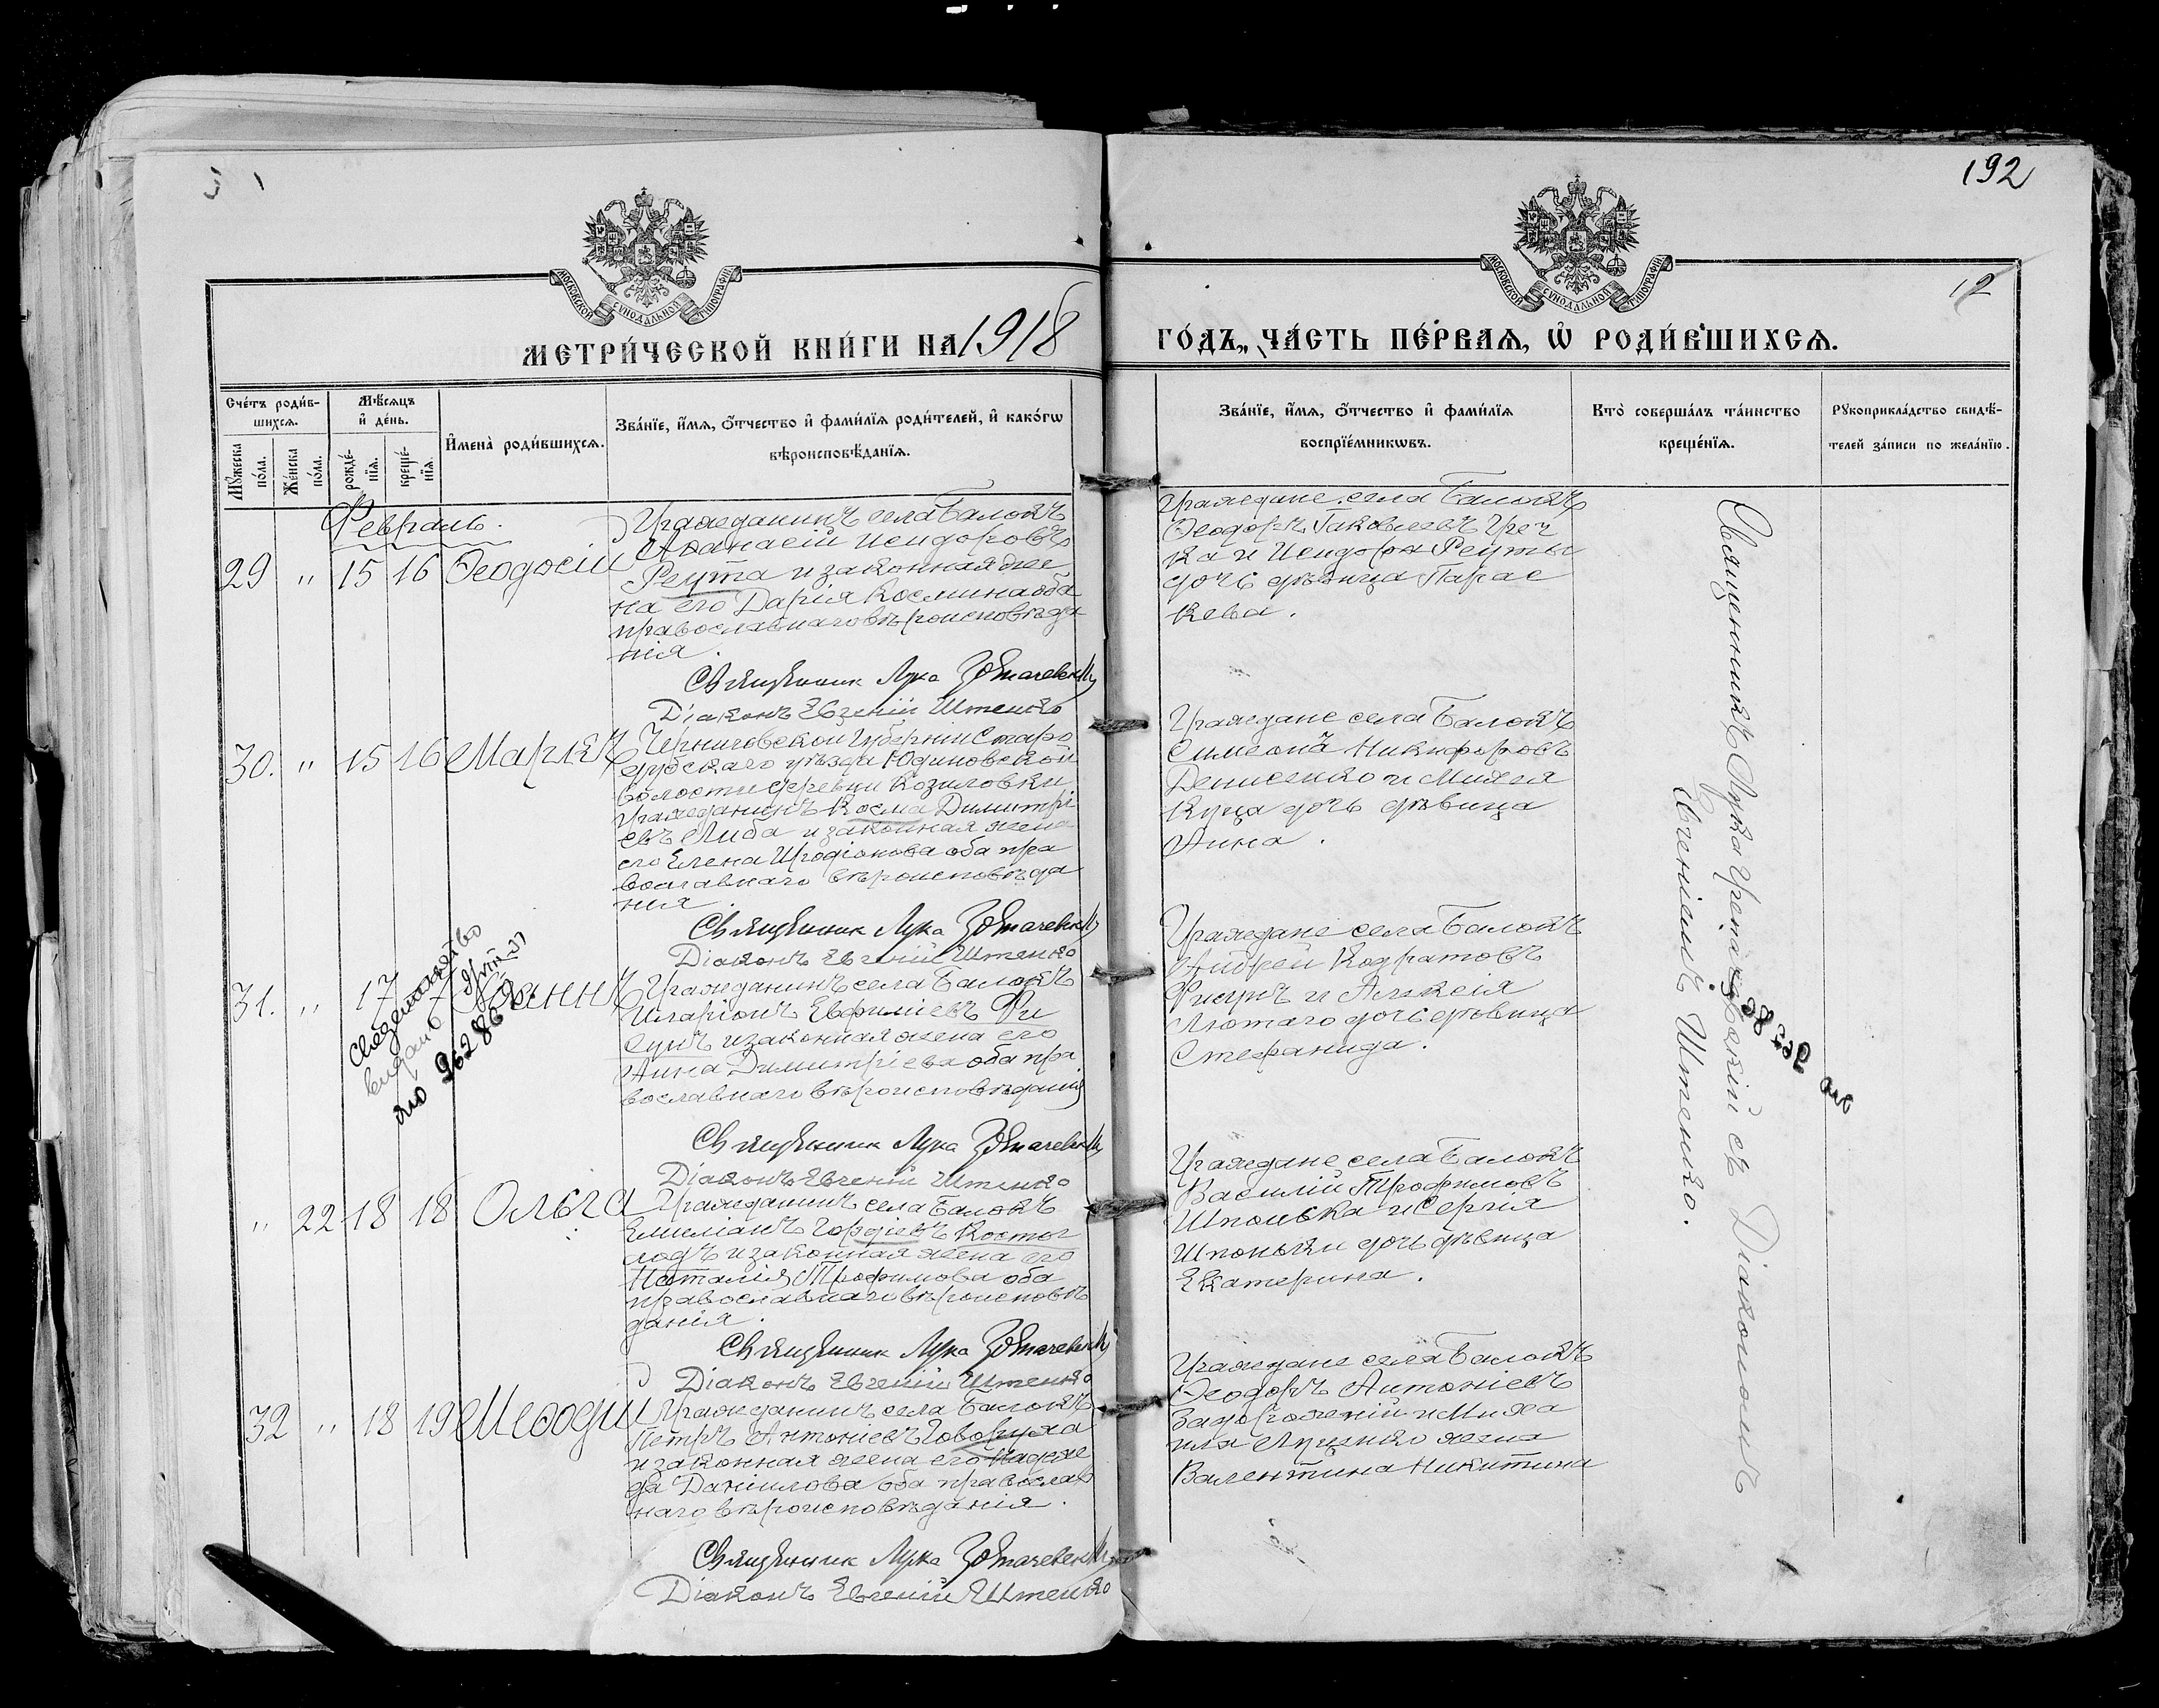 192
12
МОСКОВСКОЙ СѴНОДАЛЬНОЙ ТИПОГРАФІИ
МОСКОВСКОЙ СѴНОДАЛЬНОЙ ТИПОГРАФІИ
МЕТРИ́ЧЕСКОЙ КНИ́ГИ НА 1918
ГО́ДЪ, ЧА́СТЬ ПЕ́РВАѦ, Ѽ РОДИ́ВШИХСѦ.
Сче́тъ роди́в-
шихсѧ.
Мꙋ́жеска
по́ла.
Же́нска
по́ла.
Мѣ́сѧцъ
и҆ де́нь.
рожде́-
нїѧ.
креще́-
нїѧ.
И҆мена̀ роди́вшихсѧ.
Зва́нїе, и҆́мѧ, ѻ҆́тчество и҆ фами́лїѧ роди́телей, и҆ како́гѡ
вѣроисповѣ́данїѧ.
Зва́нїе, и҆́мѧ, ѻ҆́тчество и҆ фами́лїѧ
воспрїе́мникѡвъ.
Кто̀ соверша́лъ та́инство
креще́нїѧ.
Рꙋкоприкла́дство свидѣ́-
телей за́писи по жела́нїю.
Февраль.
29 " 15 16 Ѳеодосій
Гражданинъ села Балокъ
Аѳанасій Исидоровъ
Реута и законная же
на его Дарія Космина оба
православнаго вѣроисповѣда
нія.
Священник Лука
Діаконъ Евгеній Штенко
Граждане села Балокъ
Ѳеодоръ Іаковлевъ Греч
ка и Исидора Реуты
дочь дѣвица Парас
кева.
30. " 15 16 Маркъ
Черниговской Губерніи Старо
дубскаго уѣзда Юдиновской
волости деревни Козиловки
гражданинъ Косма Димитрі
евъ Либа и законная жена
его Елена Иродіонова оба пра
вославнаго вѣроисповѣда
нія.
Священник Лука
Діаконъ Евгеній Штенко
Граждане села Балокъ
Симеонъ Никифоровъ
Денисенко и Михея
Куца дочь дѣвица
Анна.
31. " 17 Іоаннъ
Свидетельство
видано
96286
Гражданинъ села Балокъ
Иларіонъ Евфиміевъ Фи
сунъ и законная жена его
Анна Димитріева оба пра
вославнаго вѣроисповѣданія
Священник Лука
Діаконъ Евгеній Штенко
Граждане села Балокъ
Андрей Кодратовъ
Фисунъ и Алексія
Лютаго дочь дѣвица
Стефанида.
" 22 18 18 Ольга
Гражданинъ села Балокъ
Емиліанъ Гордіевъ Костог
лодъ и законная жена его
Наталія Трофимова оба
православнаго вѣроисповѣ
данія.
Священник Лука
Діаконъ Евгеній Штенко
Граждане села Балокъ
Василій Трофимовъ
Шпонька и Сергія
Шпоньки дочь дѣвица
Екатерина.
32 " 18 19 Меѳодій
Гражданинъ села Балокъ
Петръ Антоніевъ Говоруха
и законная жена его Надеж
да Даніилова оба православ
наго вѣроисповѣданія.
Священник Лука
Діаконъ Евгеній Штенко
Граждане села Балокъ
Ѳеодоръ Антоніевъ
Задорожній и Миха
ила жена
Валентина Никитина
Священникъ Лука съ Діакономъ
Евгеніемъ Штенко.